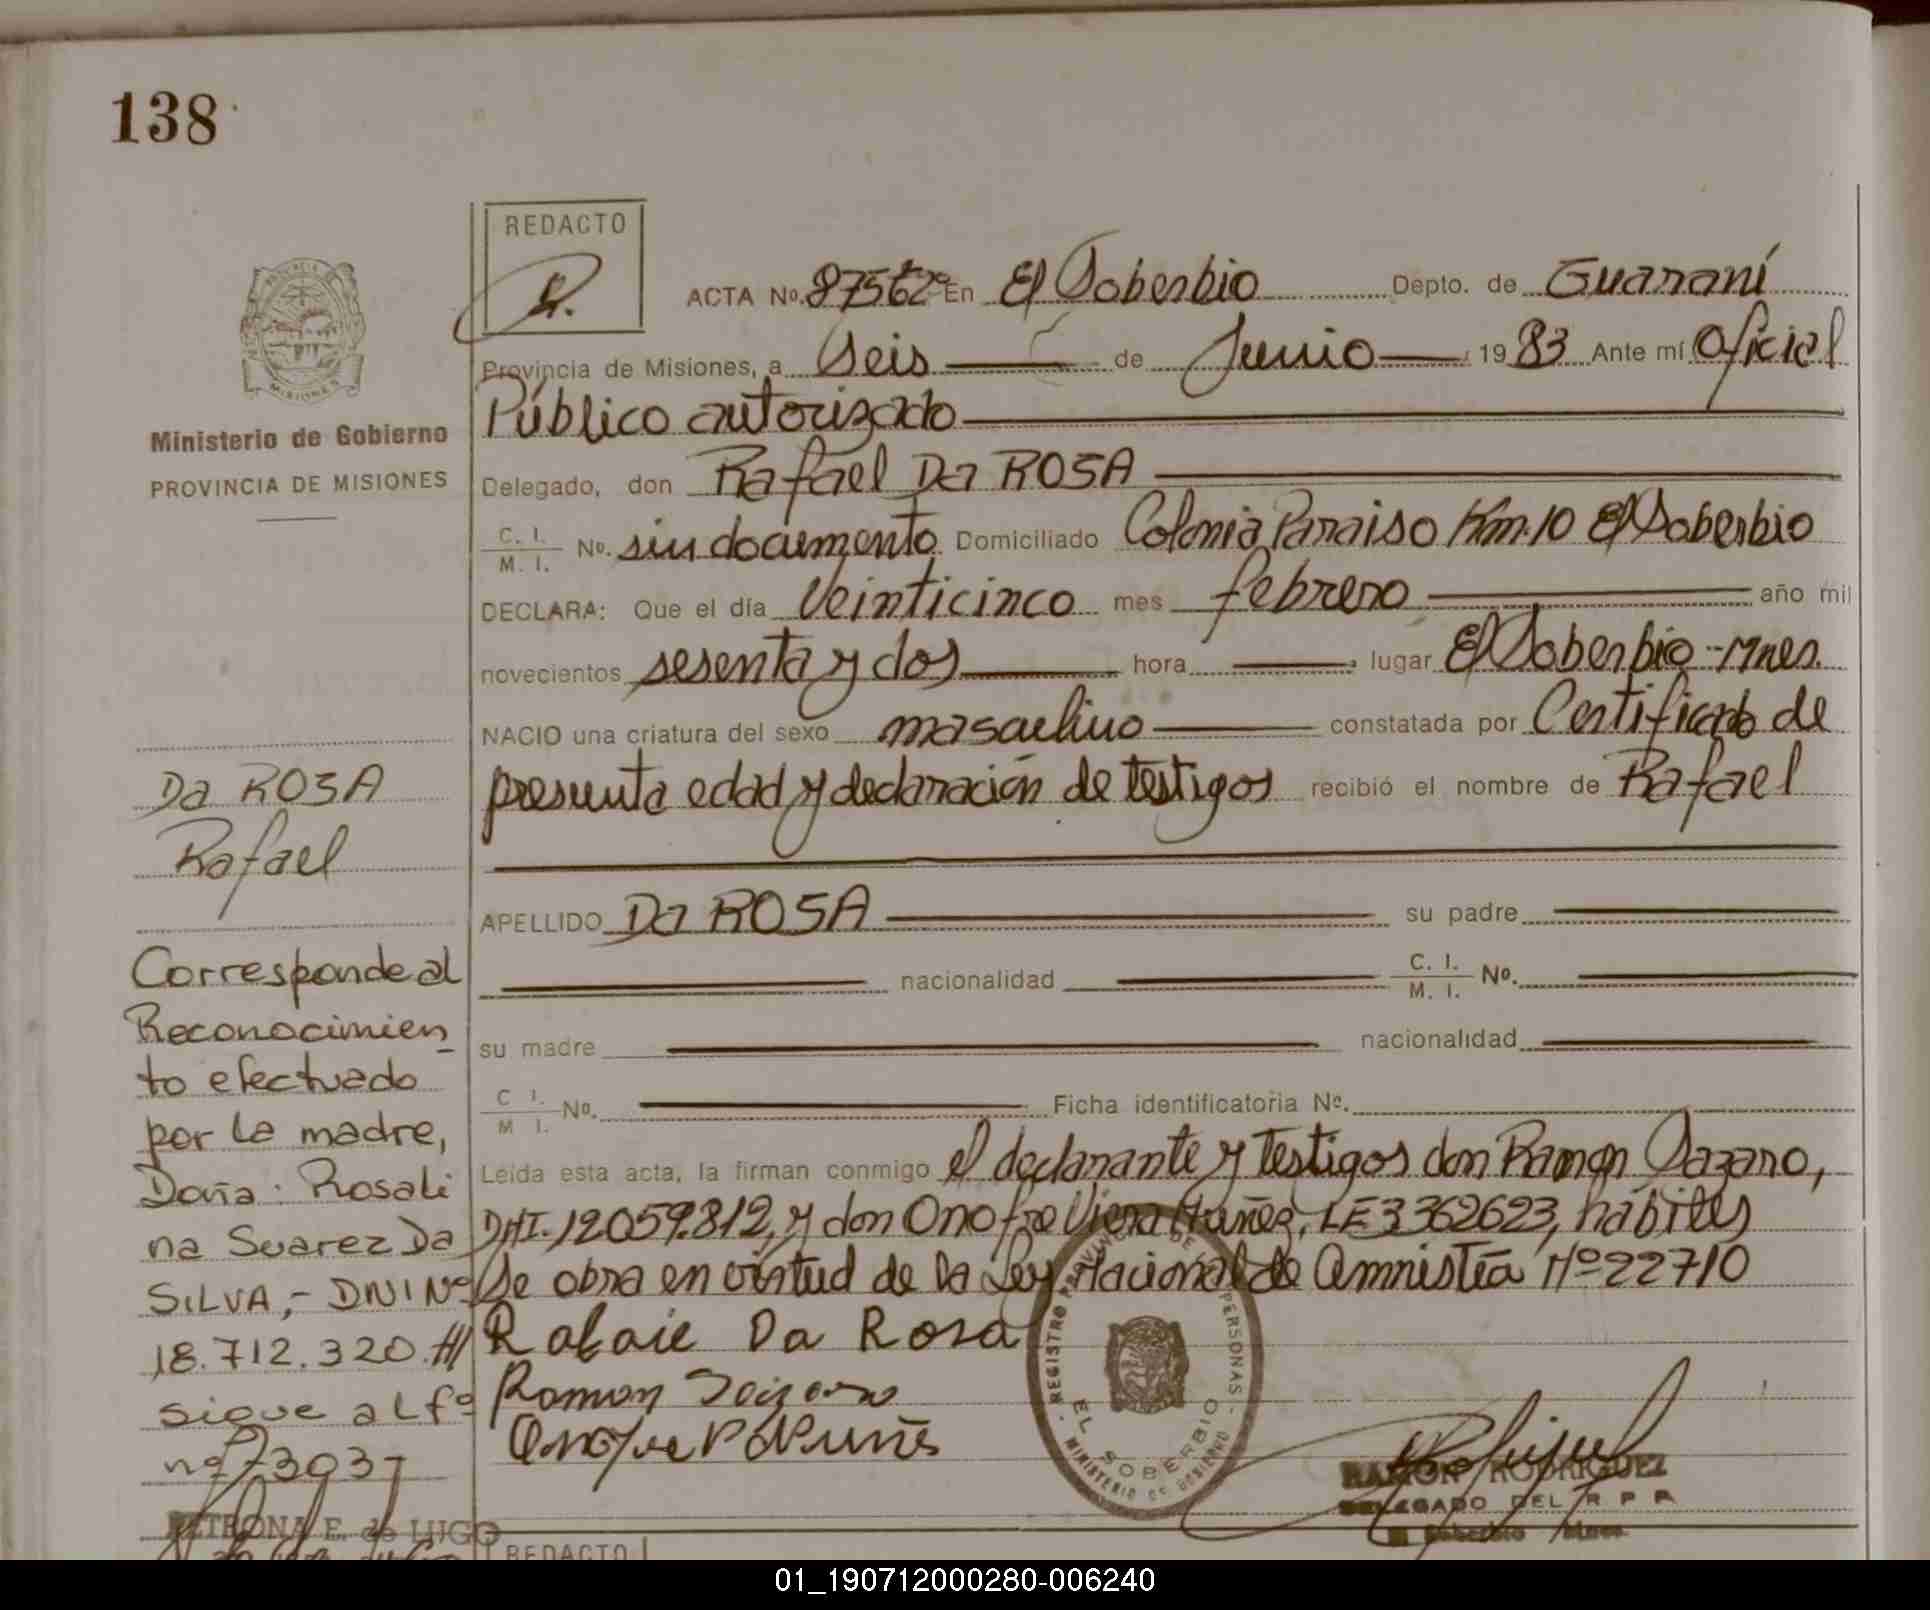 138
REDACTO
ACTA No. 87562 En El Soberbio Depto. de Guaraní
Provincia de Misiones, a Seis de Junio 1983 Ante mí Oficial
Público autorizado
Ministerio de Gobierno
PROVINCIA DE MISIONES
Delegado, don Rafael Da ROSA
C. I.
M. I. No. sin documento Domiciliado Colonia Paraiso Km. 10 El Soberbio
DECLARA: Que el día Veinticinco mes febrero año mil
novecientos sesenta y dos hora lugar El Soberbio - Mnes.
NACIO una criatura del sexo masculino constatada por Certificado de
presunta edad y declaración de testigos recibió el nombre de Rafael
APELLIDO Da ROSA su padre
nacionalidad C. I.
M. I. No.
su madre nacionalidad
C. I.
M. I. No. Ficha identificatoria No.
Leída esta acta, la firman conmigo el declarante y testigos don Ramon Sazano,
DNI. 12059.812, y don Onofre Viera Nuñez, LE 3362623, hábiles
Se obra en virtud de la Ley Nacional de Amnistía Nº 22710
Rafaie Da Rosa
Ramon
Da ROSA
Rafael
Corresponde al
Reconocimien
to efectuado
por la madre,
Doña: Rosali
na Suarez Da
SILVA,- DNI Nº
18.712.320.///
sigue al fº
nº 73037
PETRONA E. de LUGO
REGISTRO PROVINCIAL DE PERSONAS
EL SOBERBIO
MINISTERIO DE GOBIERNO
RAMON RODRIGUEZ
DELEGADO DEL R P P
El Soberbio Mnes.
REDACTO
01_190712000280-006240